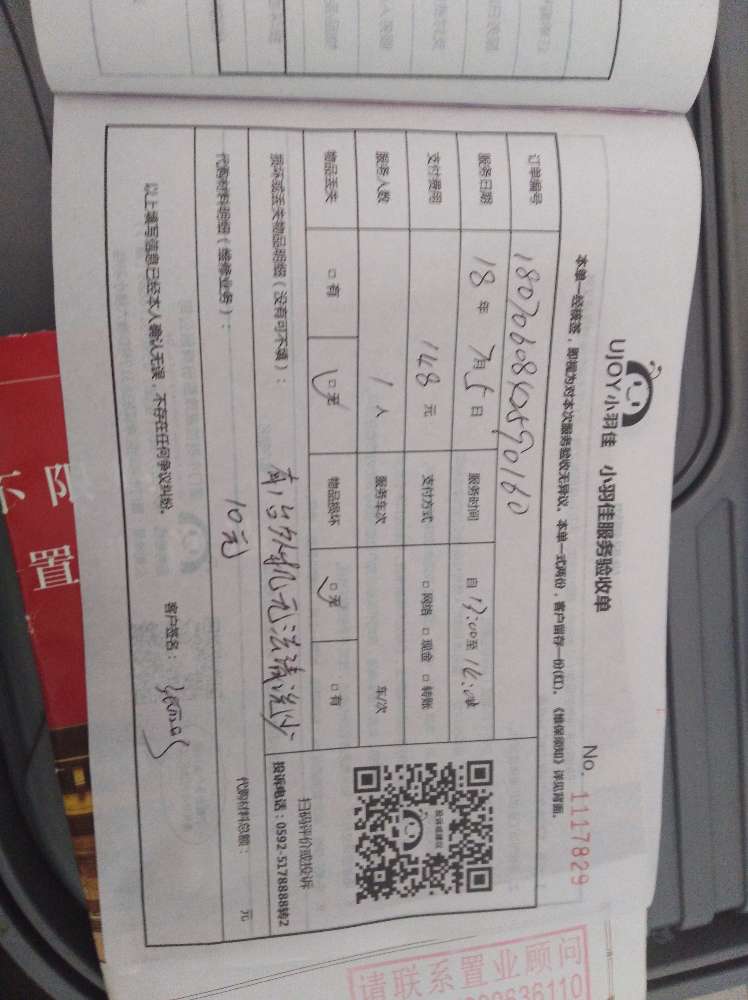 UJOY小羽佳 小羽佳服务验收单
No. 1117829
本单一经核签，即视为对本次服务验收无异议。本单一式两份，客户留存一份(红)。《维保须知》详见背面。
订单编号
服务日期 18年 7月 5日 服务时间 自
至
支付费用 148 元 支付方式 □ 网络 □ 现金 □ 转账
服务人数 1 人 服务车次 车/次
物品丢失 □ 有 □ 无 物品损坏 □ 无 □ 有
损坏或丢失物品明细（没有可不填）：
台外机无法清洗少
10元
代购材料明细（维修业务）：
代购材料总额： 元
以上填写信息已经本人确认无误，不存在任何争议纠纷。
客户签名：
投诉或建议
扫码评价或投诉
投诉电话：0592-5178888转2
请联系置业顾问
置